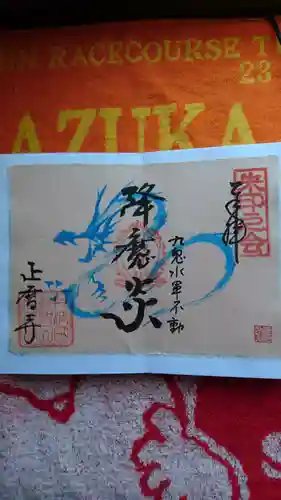 N RACECOURSE T
23
AZUKA
奉拝
降魔炎
九鬼水軍不動
正暦寺